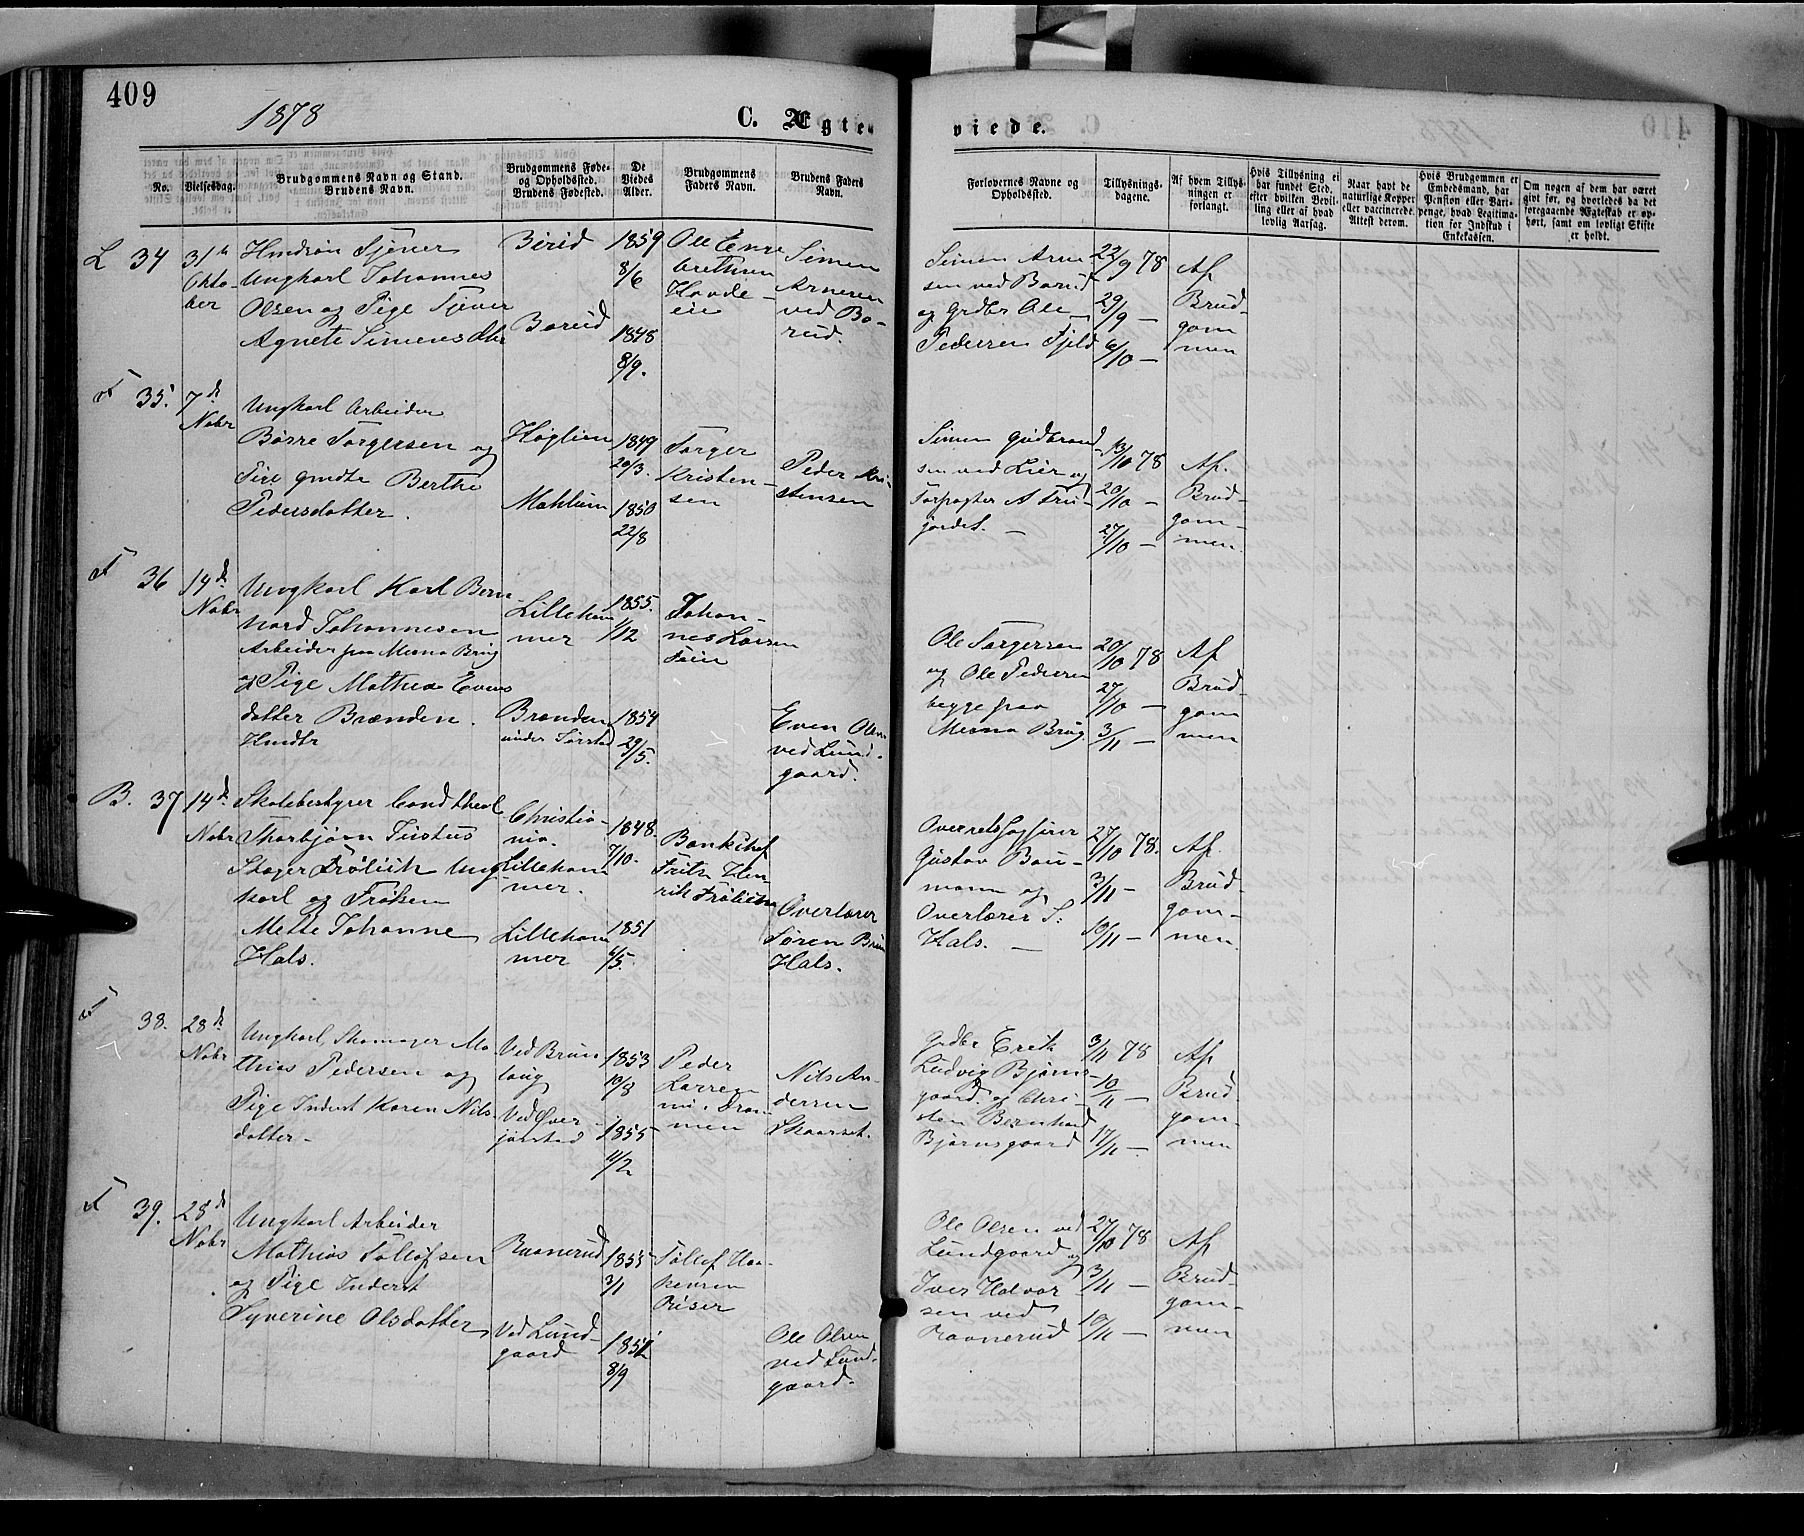 409
1878
C. Ægteviede.
No.
Vielsesdag.
Brudgommens Navn og Stand.
Brudens Navn.
Brudgommens Føde-
og Opholdssted.
Brudens Fødested.
De
Viedes
Alder.
Brudgommens
Faders Navn.
Brudens Faders
Navn.
Forlovernes Navne og
Opholdssted.
Tillysnings-
dagene.
Af hvem Tillys-
ningen er
forlangt.
Hvis Tillysning ei
har fundet Sted,
efter hvilken Bevil-
ling eller af hvad
lovlig Aarsag.
Naar havt de
naturlige Kopper
eller vaccinerede.
Attest derom.
Hvis Brudgommen er
Embedsmand, har
Pension eller Vart-
penge, hvad Legitima-
tion for Indskud i
Enkekassen.
Om nogen af dem har været
givt før, og hvorledes da det
foregaaende Ægteskab er op-
hørt, samt om lovligt Skifte
er holdt.
L 34
31te
Okto-
ber
Ungkarl Johannes
Olsen og Pige
Agnete Simensdtr
Birid
Borud
1859
8/6
1848
8/9.
Ole
Simen
Arnesen
ved Bo-
rud.
Simen Arne
sen ved Borud
og Grdbr Ole
Pedersen Fjeld
22/9 78
29/9 —
6/10 —
Af
Brud-
gom
men
35.
7de
Nobr
Ungkarl Arbeider
Børre Torgersen og
Pige Berthe
Pedersdatter.
Høglien
Mæhlum
1849
20/3.
1850
22/8
Torger
Kristen-
sen
Peder Kri-
stensen
Simen Gudbrand-
sen ved Lier og
Forpagter A
jordet. —
13/10 78
20/10 —
27/10 —
Af.
Brud-
gom-
men.
36
14de
Nobr
Ungkarl Karl Bern-
hard Johannesen
Arbeider paa Mesna Brug
og Pige Mathea Evens
datter Brænden.
Lilleham
mer
Brænden
under Sørstad
1855.
1/12
1854
29/5.
Johan-
nes Larsen
Even Olsen
ved Lund-
gaard.
Ole Torgersen
og Ole Pedersen
begge paa
Mesna Brug
20/10 78
27/10 —
3/11 —
Af
Brud-
gom
men
B. 37
14de
Nobr
Skolebestyrer Cand theol
Thorbjørn Justus
Stager Frølich Ung-
karl og Frøken
Mette Johanne
Hals.
Christia-
nia.
Lilleham
mer.
Lilleham
mer
1848.
7/10.
1851
6/5.
Bankchef
Fritz Hen-
rik Frølich
Overlærer
Søren Bruun
Hals.
Overretssagfører
Gustav Bau-
mann og
Overlærer S.
Hals. —
27/10 78.
3/11 —
10/11 —
Af.
Brud-
gom-
men.
38.
28de
Nobr
Ungkarl, Skomager Ma
thias Pedersen og
Pige Inderst Karen Nils
datter —
Ved Brun
laug
Ved Øver-
jørstad
1853
10/8
1855
11/2
Peder
Larsen
nu i Dram
men
Nils An-
dersen
Skaarset.
Grdbr Erik
Ludvig Bjørns-
gaard og Chri-
sten Bernhard
Bjørnsgaard
3/11 78
10/11 —
17/11 —
Af
Brud-
gom-
men
39.
28de
Nobr
Ungkarl Arbeider
Mathias Tollefsen
og Pige Inderst
Syverine Olsdatter
Ravnerud
Ved Lund-
gaard
1855
3/1
8/9
Tollef Haa-
kensen
Riser
Ole Olsen
ved Lund-
gaard.
Ole Olsen ved
Lundgaard og
Iver Halvor
sen ved
Ravnerud
27/10 78
3/11 —
10/11 —
Af
Brud-
gom-
men